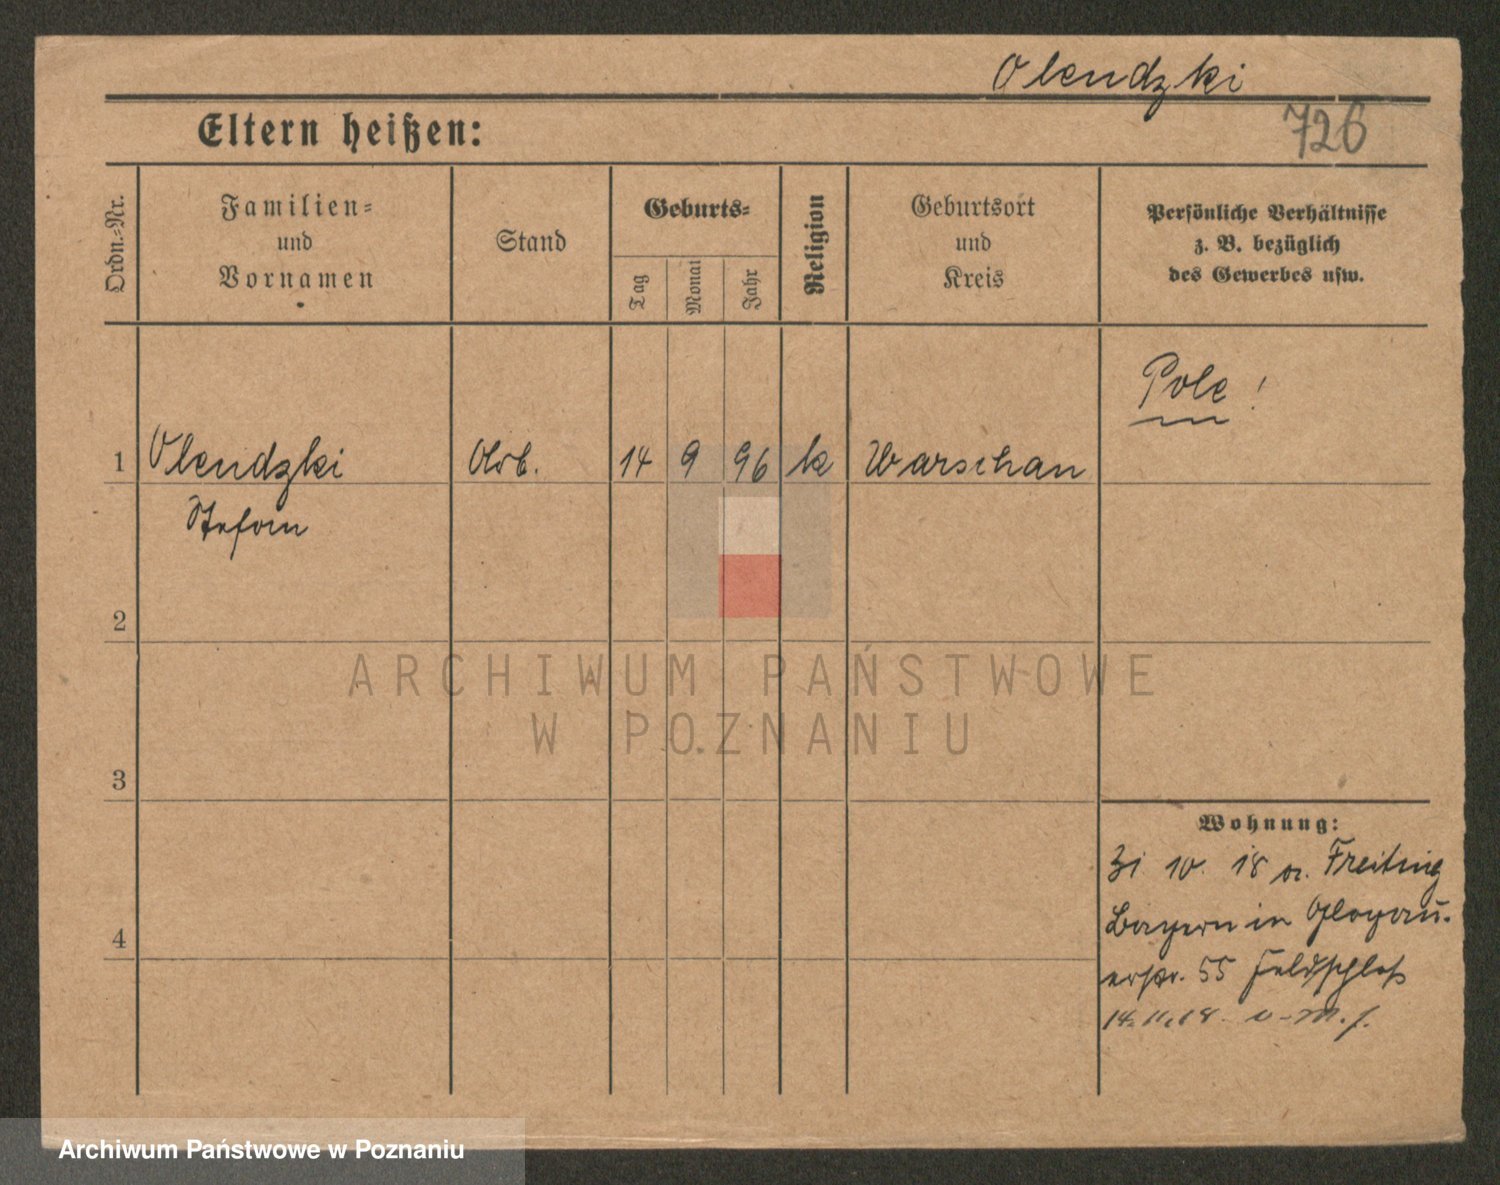 Olendzki
Eltern heißen:
726
Ordn.-Nr.
Familien-
und
Vornamen
Stand
Geburts-
Tag
Monat
Jahr
Religion
Geburtsort
und
Kreis
Persönliche Verhältnisse
z. B. bezüglich
des Gewerbes usw.
Pole!
1 Olendzki Arb. 14 9 96 k Warschau
Stefan
2
ARCHIWUM PAŃSTWOWE
W POZNANIU
3
Wohnung:
31 10. 18 Freising
Bayern in Glogau.
55 Feldschloß
4
14.11.18
Archiwum Państwowe w Poznaniu